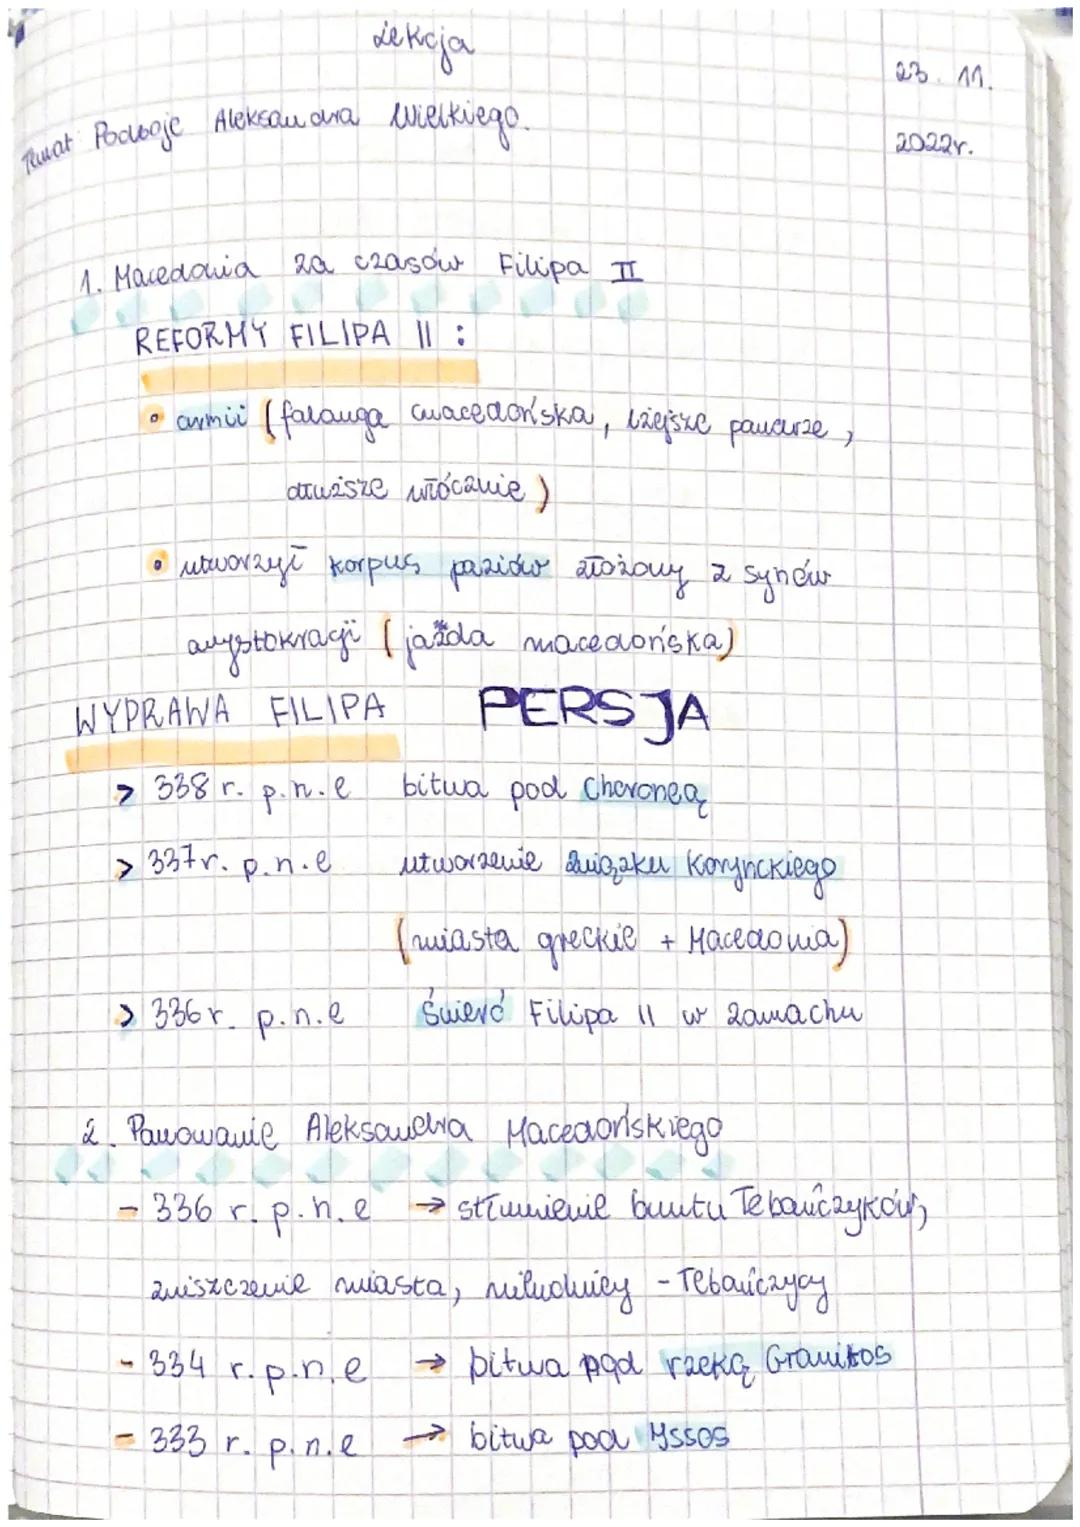 Lekcja
23. 11.
2022r.
Temat: Podboje Aleksandra Wielkiego.
1. Macedonia za czasów Filipa II
REFORMY FILIPA II :
• armii (falanga macedońska, lżejsze pancerze,
dłuższe włócznie)
• utworzył korpus paziów złożony z synów
arystokracji (jazda macedońska)
WYPRAWA FILIPA PERSJA
> 338 r. p.n.e bitwa pod Cheroneą
> 337r. p.n.e utworzenie Związku Korynckiego
(miasta greckie + Macedonia)
> 336r. p.n.e śmierć Filipa II w zamachu
2. Panowanie Aleksandra Macedońskiego
- 336 r. p.n.e → stłumienie buntu Tebańczyków,
zniszczenie miasta, niewolnicy - Tebańczycy
- 334 r. p.n.e → bitwa nad rzeką Granikos
- 333 r. p.n.e → bitwa pod Issos